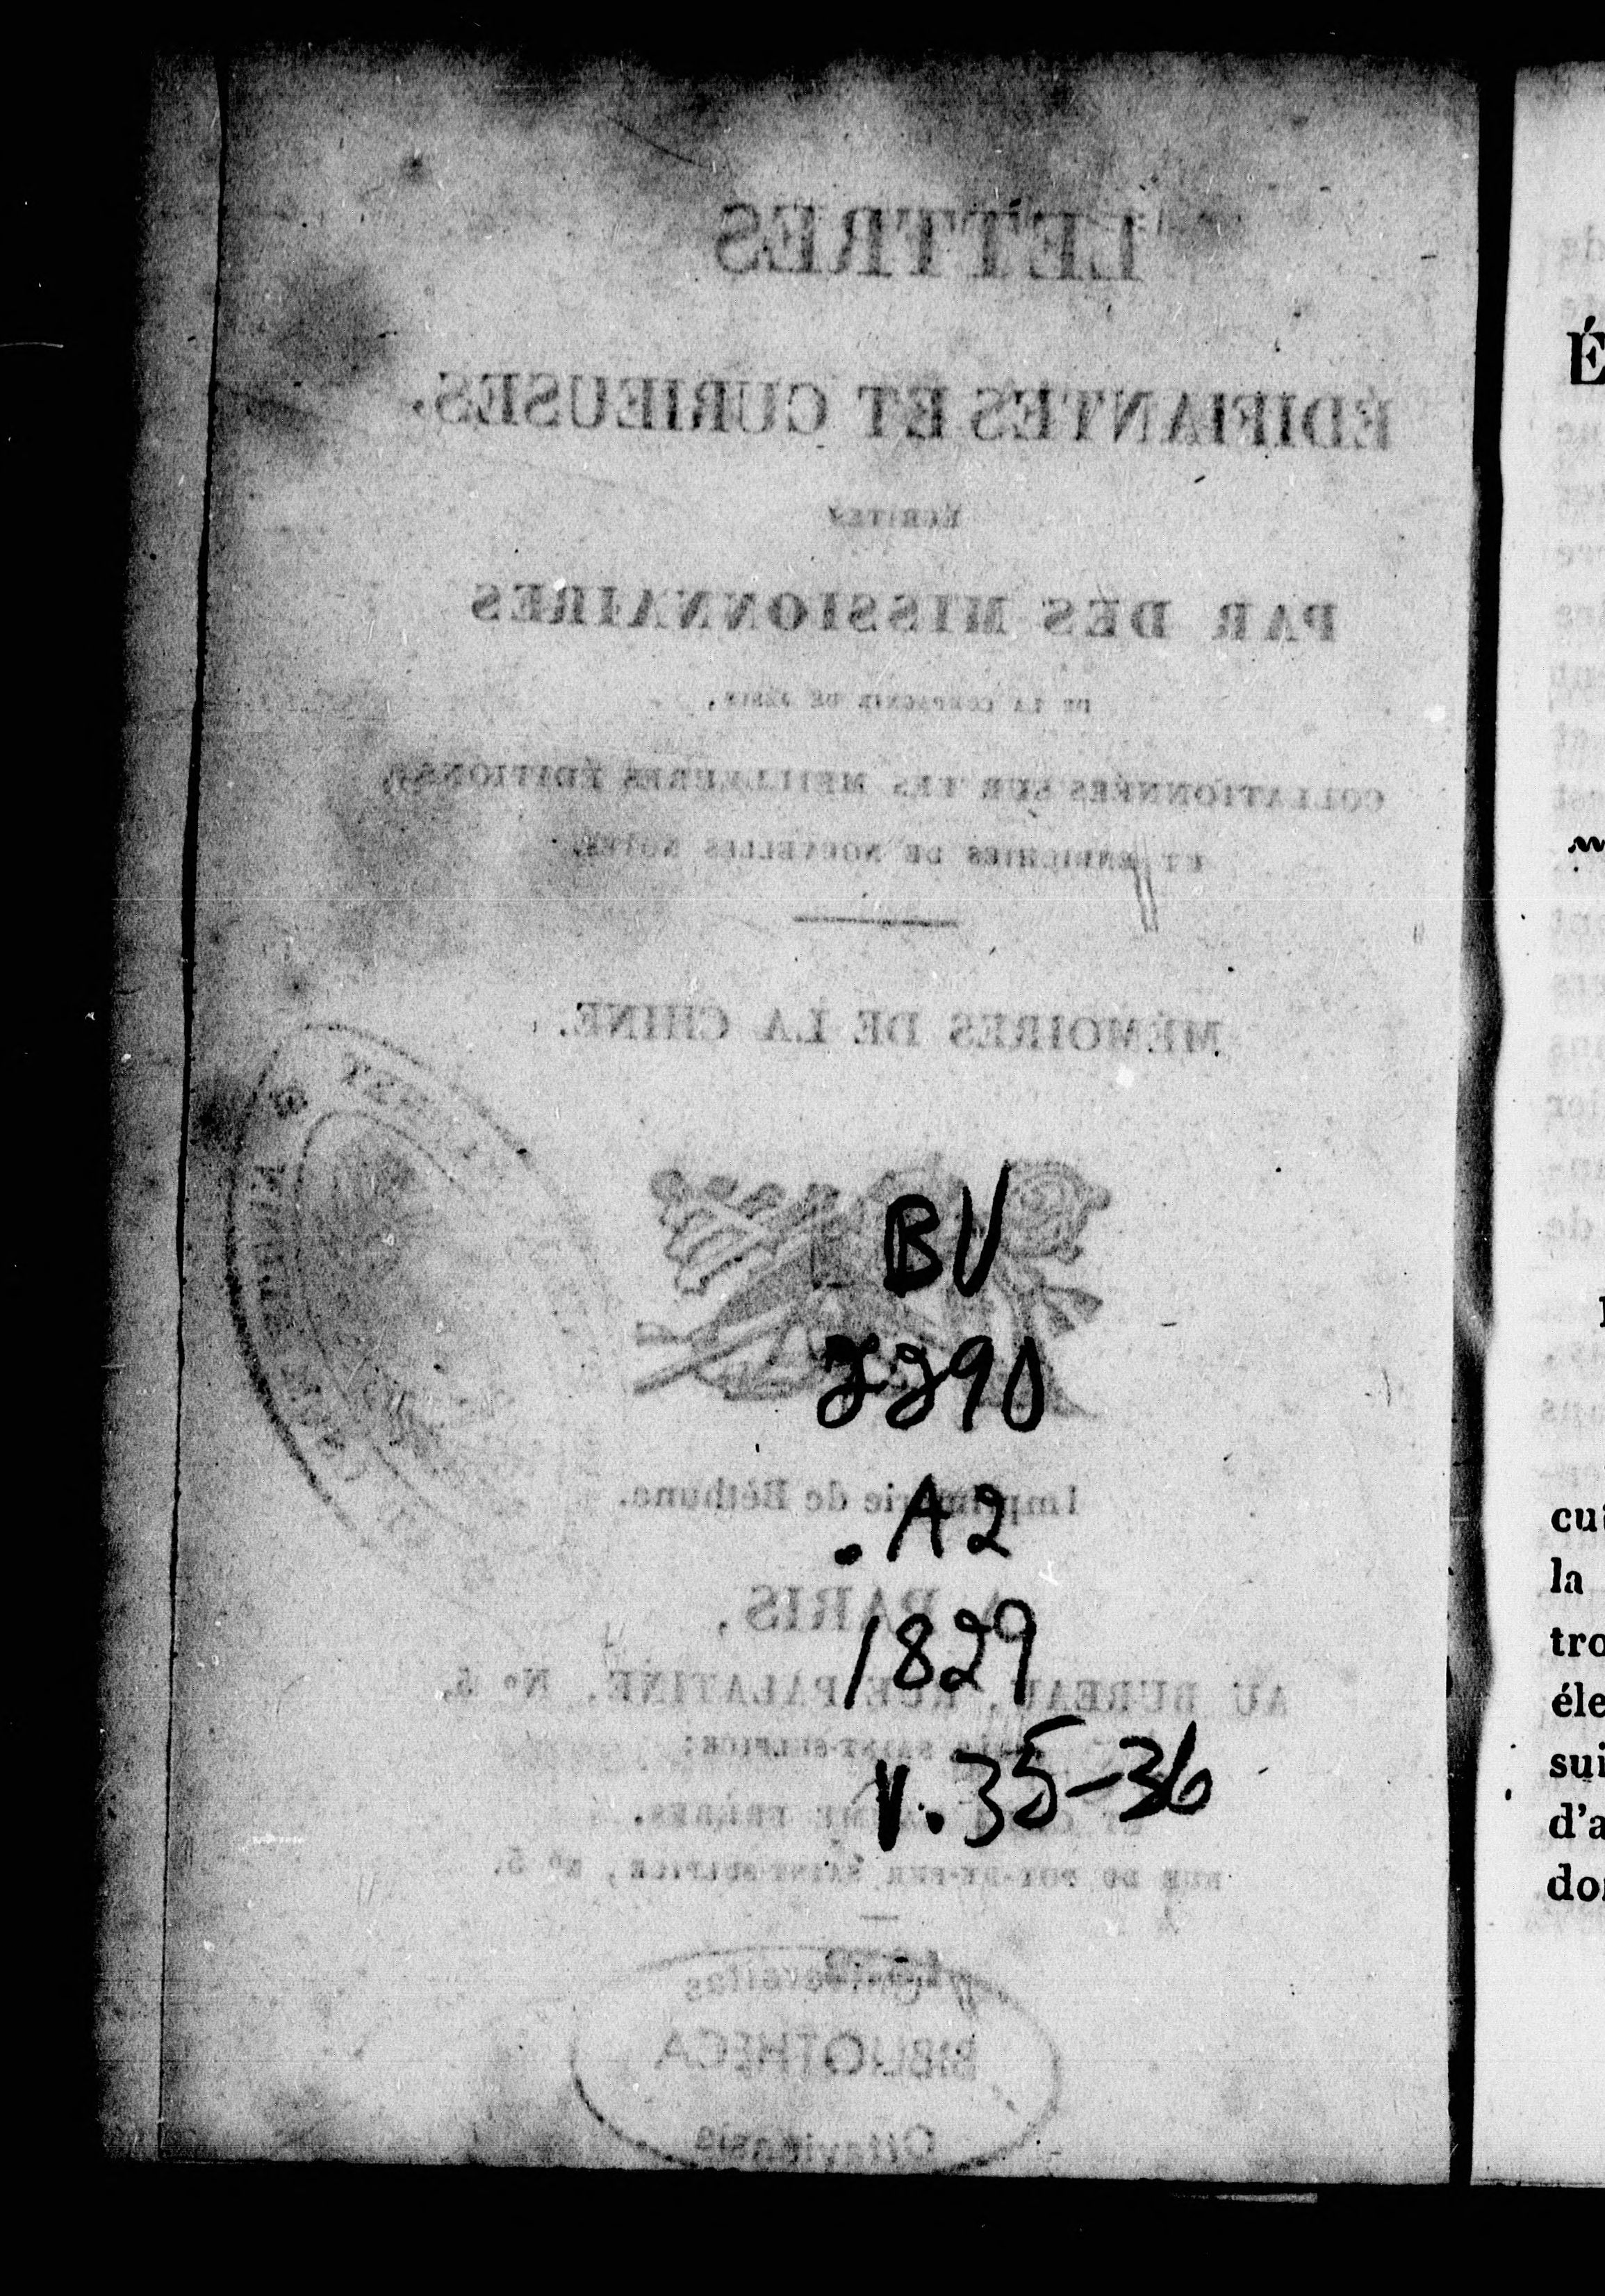 LETTRES
ÉDIFIANTES ET CURIEUSES,
ÉCRITES
PAR DES MISSIONNAIRES
DE LA COMPAGNIE DE JÉSUS,
COLLATIONNÉES SUR LES MEILLEURES ÉDITIONS,
ET ENRICHIES DE NOUVELLES NOTES.
MÉMOIRES DE LA CHINE.
BV
2290
.A2
1829
v.35-36
Imprimerie de Béthune.
A PARIS,
AU BUREAU, RUE PALATINE, No 5,
SAINT-SULPICE;
FRÈRES,
RUE DU POT-DE-FER SAINT-SULPICE, No 5.
Universitas
BIBLIOTHECA
Ottaviensis
É
cui
la
tro
éle
sui
d'a
don